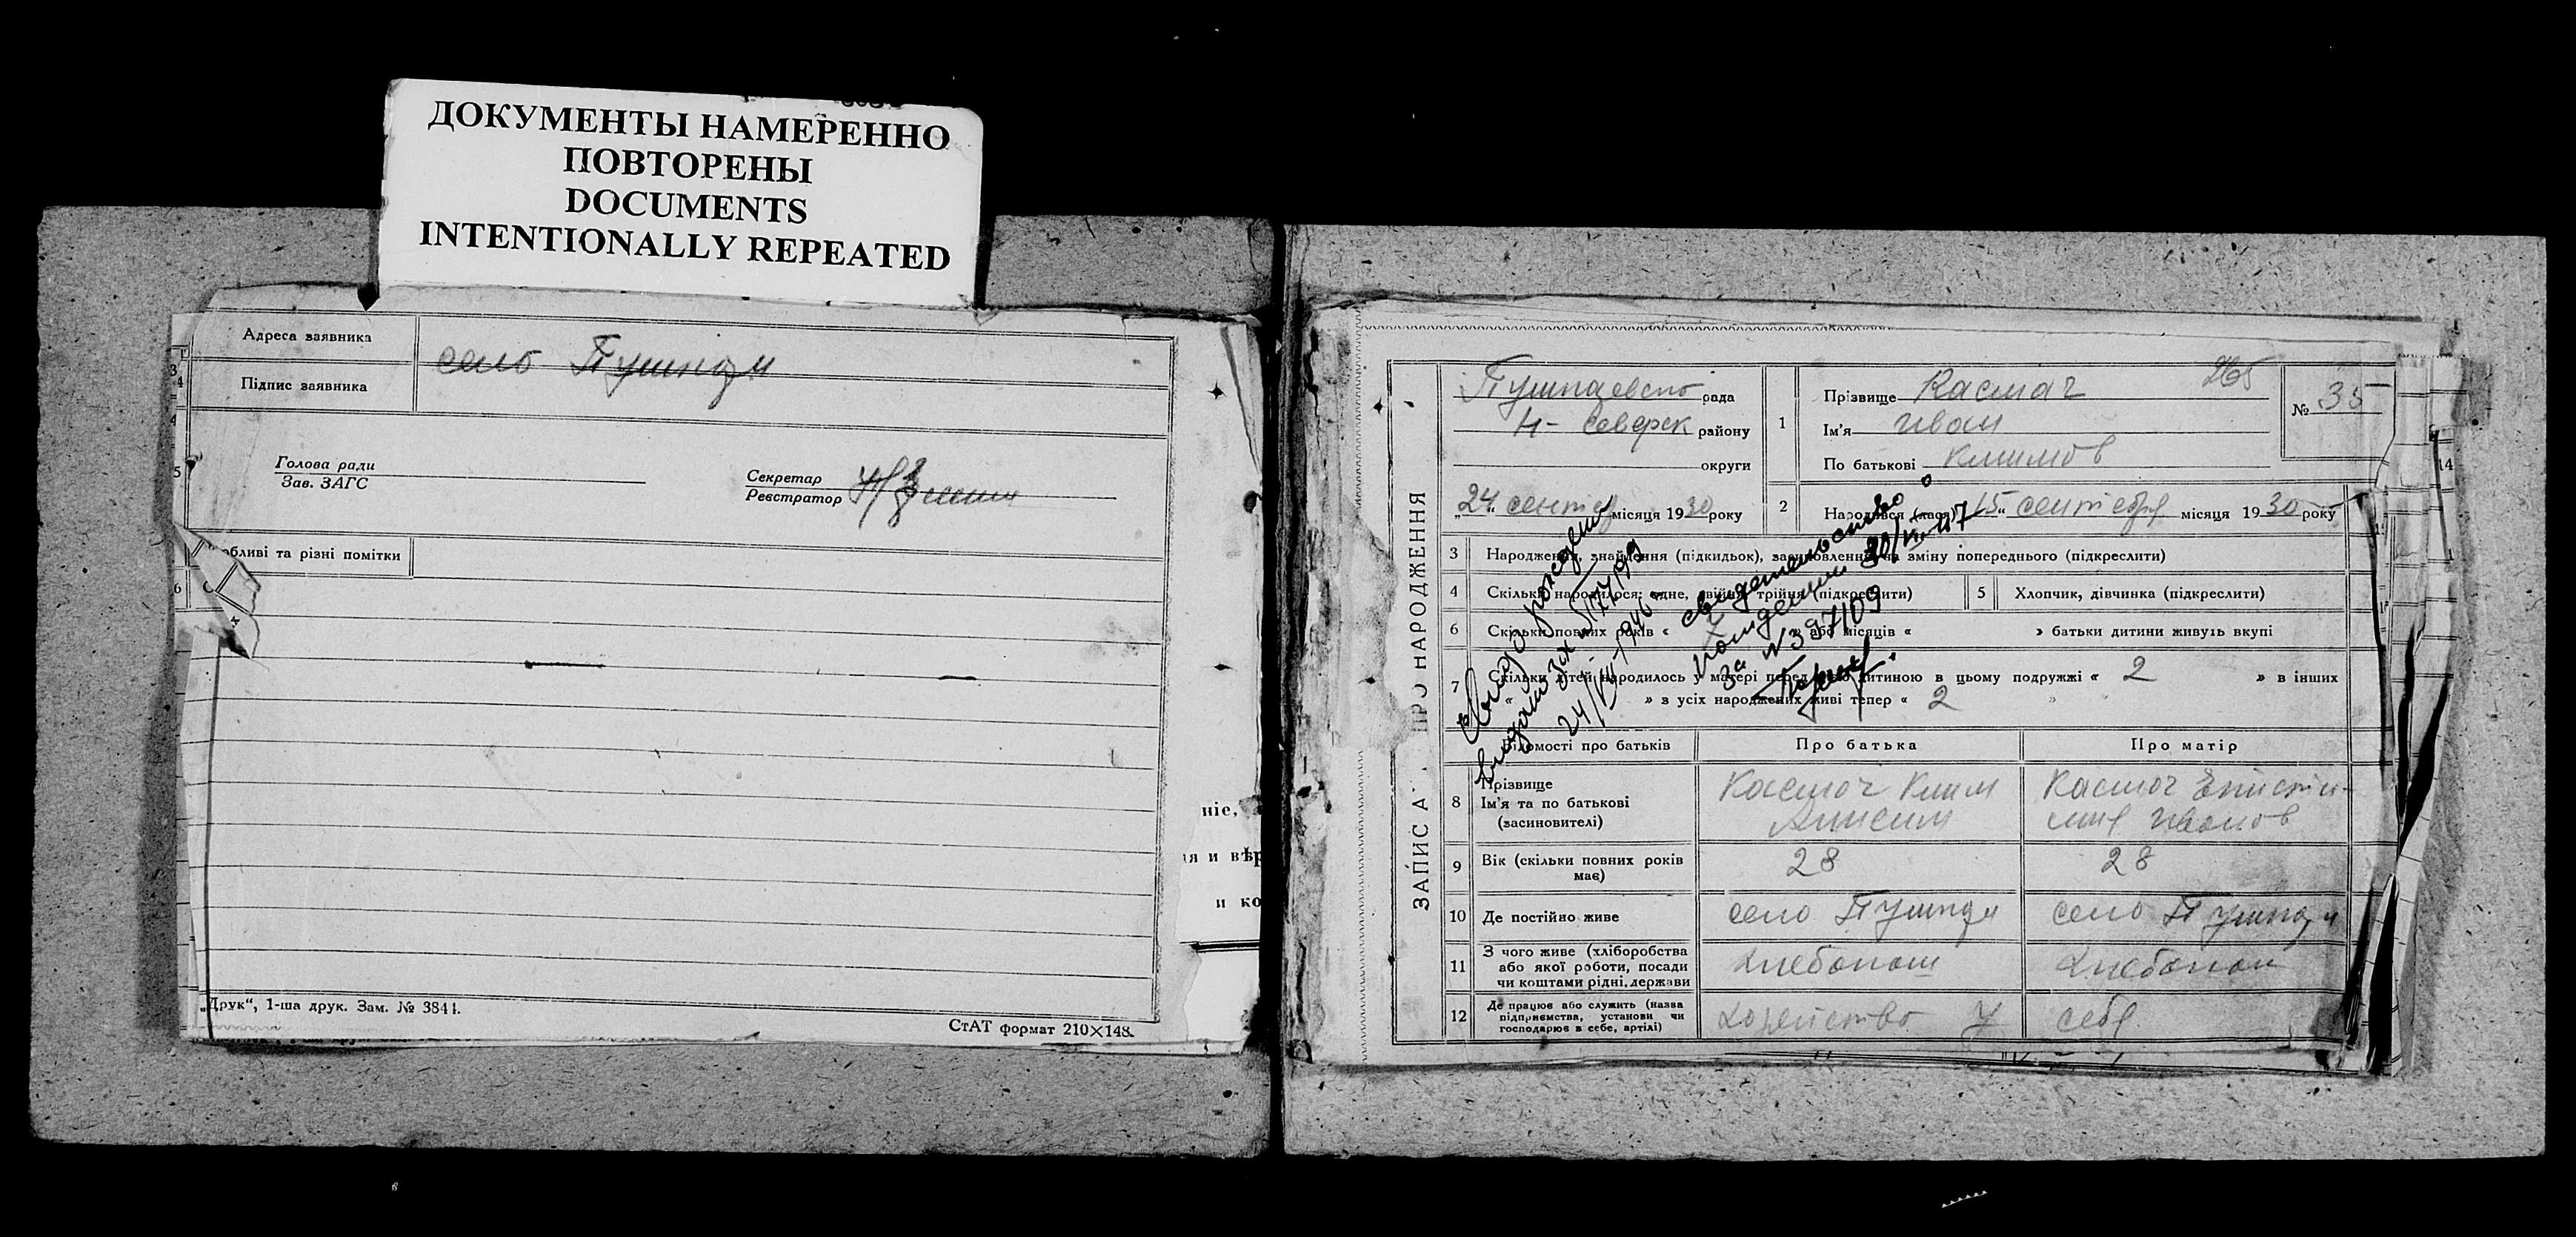 ДОКУМЕНТЫ НАМЕРЕННО
ПОВТОРЕНЫ
DOCUMENTS
INTENTIONALLY REPEATED
Адреса заявника
село
Підпис заявника
Голова ради
Зав. ЗАГС
Секретар
Реєстратор
обливі та різні помітки
„Друк“, 1-ша друк. Зам. № 3844.
СтАТ формат 210×148.
ніе,
ія и вѣр
и ко
ЗАПИС А ПРО НАРОДЖЕННЯ
рада
Н- Северск району
округи
„24“ сентяб місяця 1930 року
1
Прізвище Касмач
Ім'я Иван
По батькові Климов
265
№ 35
2
Народився (лася) „15“ сентебря місяця 1930 року
3 Народження, знайдення (підкидьок), засиновлення, на зміну попереднього (підкреслити)
4 Скільки народилося: одне, двійня, трійня (підкреслити)
5 Хлопчик, дівчинка (підкреслити)
6 Скільки повних років « » або місяців « » батьки дитини живуть вкупі
7 Скільки дітей народилось у матері перед цією дитиною в цьому подружжі « 2 » в інших
« » з усіх народжених живі тепер « 2 »
Свид о рождении
24/VIII-1946
свидетельство о
30/VI-47
за №397109
Відомості про батьків
Про батька
Про матір
8 Прізвище
Ім'я та по батькові
(засиновителі)
Касмач Клим
Анисим
Касмач Епистин-
Иванов
9 Вік (скільки повних років
має)
28
28
10 Де постійно живе
село
село
11 З чого живе (хліборобства
або якої роботи, посади
чи коштами рідні, держави
Хлебопаш
Хлебопаш
12 Де працює або служить (назва
підприємства, установи чи
господарює в себе, артілі)
хозяйство у
себя
14